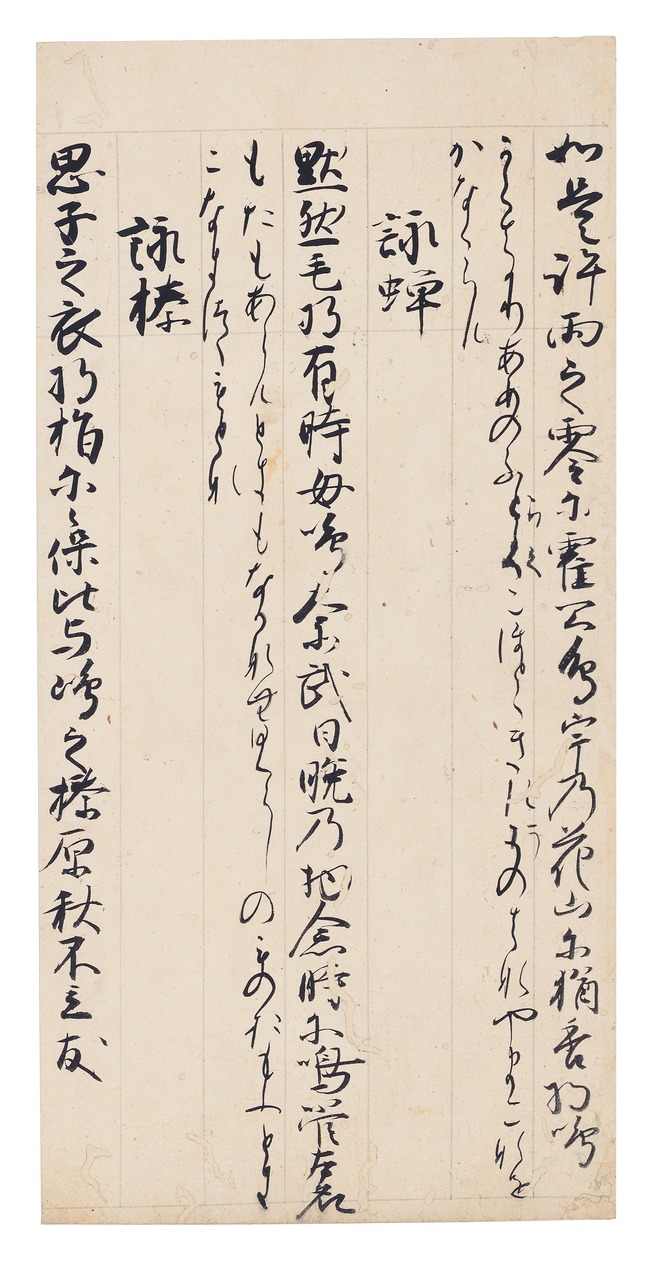 如是許雨之零尓霍公鳥宇乃花山尓猶香将鳴
かくはかりあめのふらくにほとゝきすうのはなやまになを
かなくらん
詠蝉
黙然毛将有時毋鳴奈武日晩乃物念時尓鳴管本名
もたもあらんときもなかなむひくらしのものおもふとき
になきつゝもとな
詠榛
思子之衣将揩尓々保比与嶋之榛原秋不立友